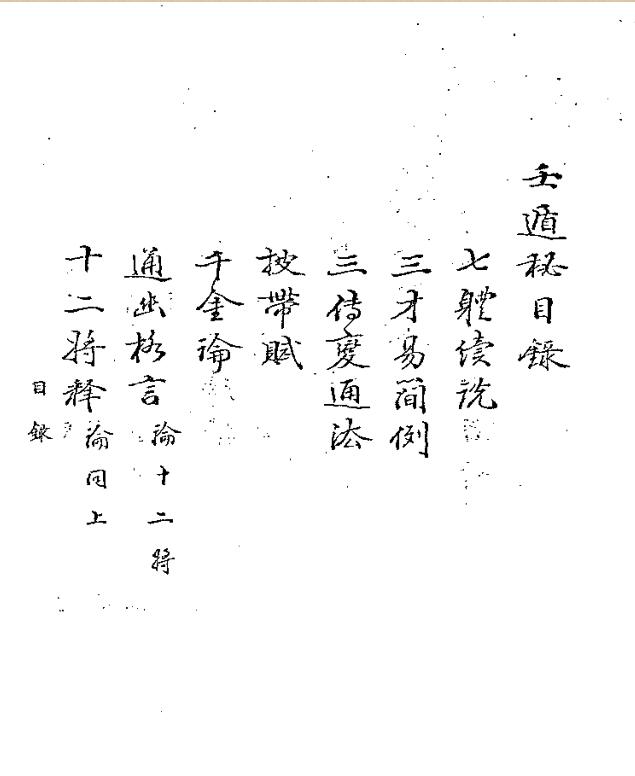 壬遁秘目錄
七體續說
三才易簡例
三傳變通法
披帶賦
千金論
通幽格言 論十二將
十二將釋 論同上
目錄